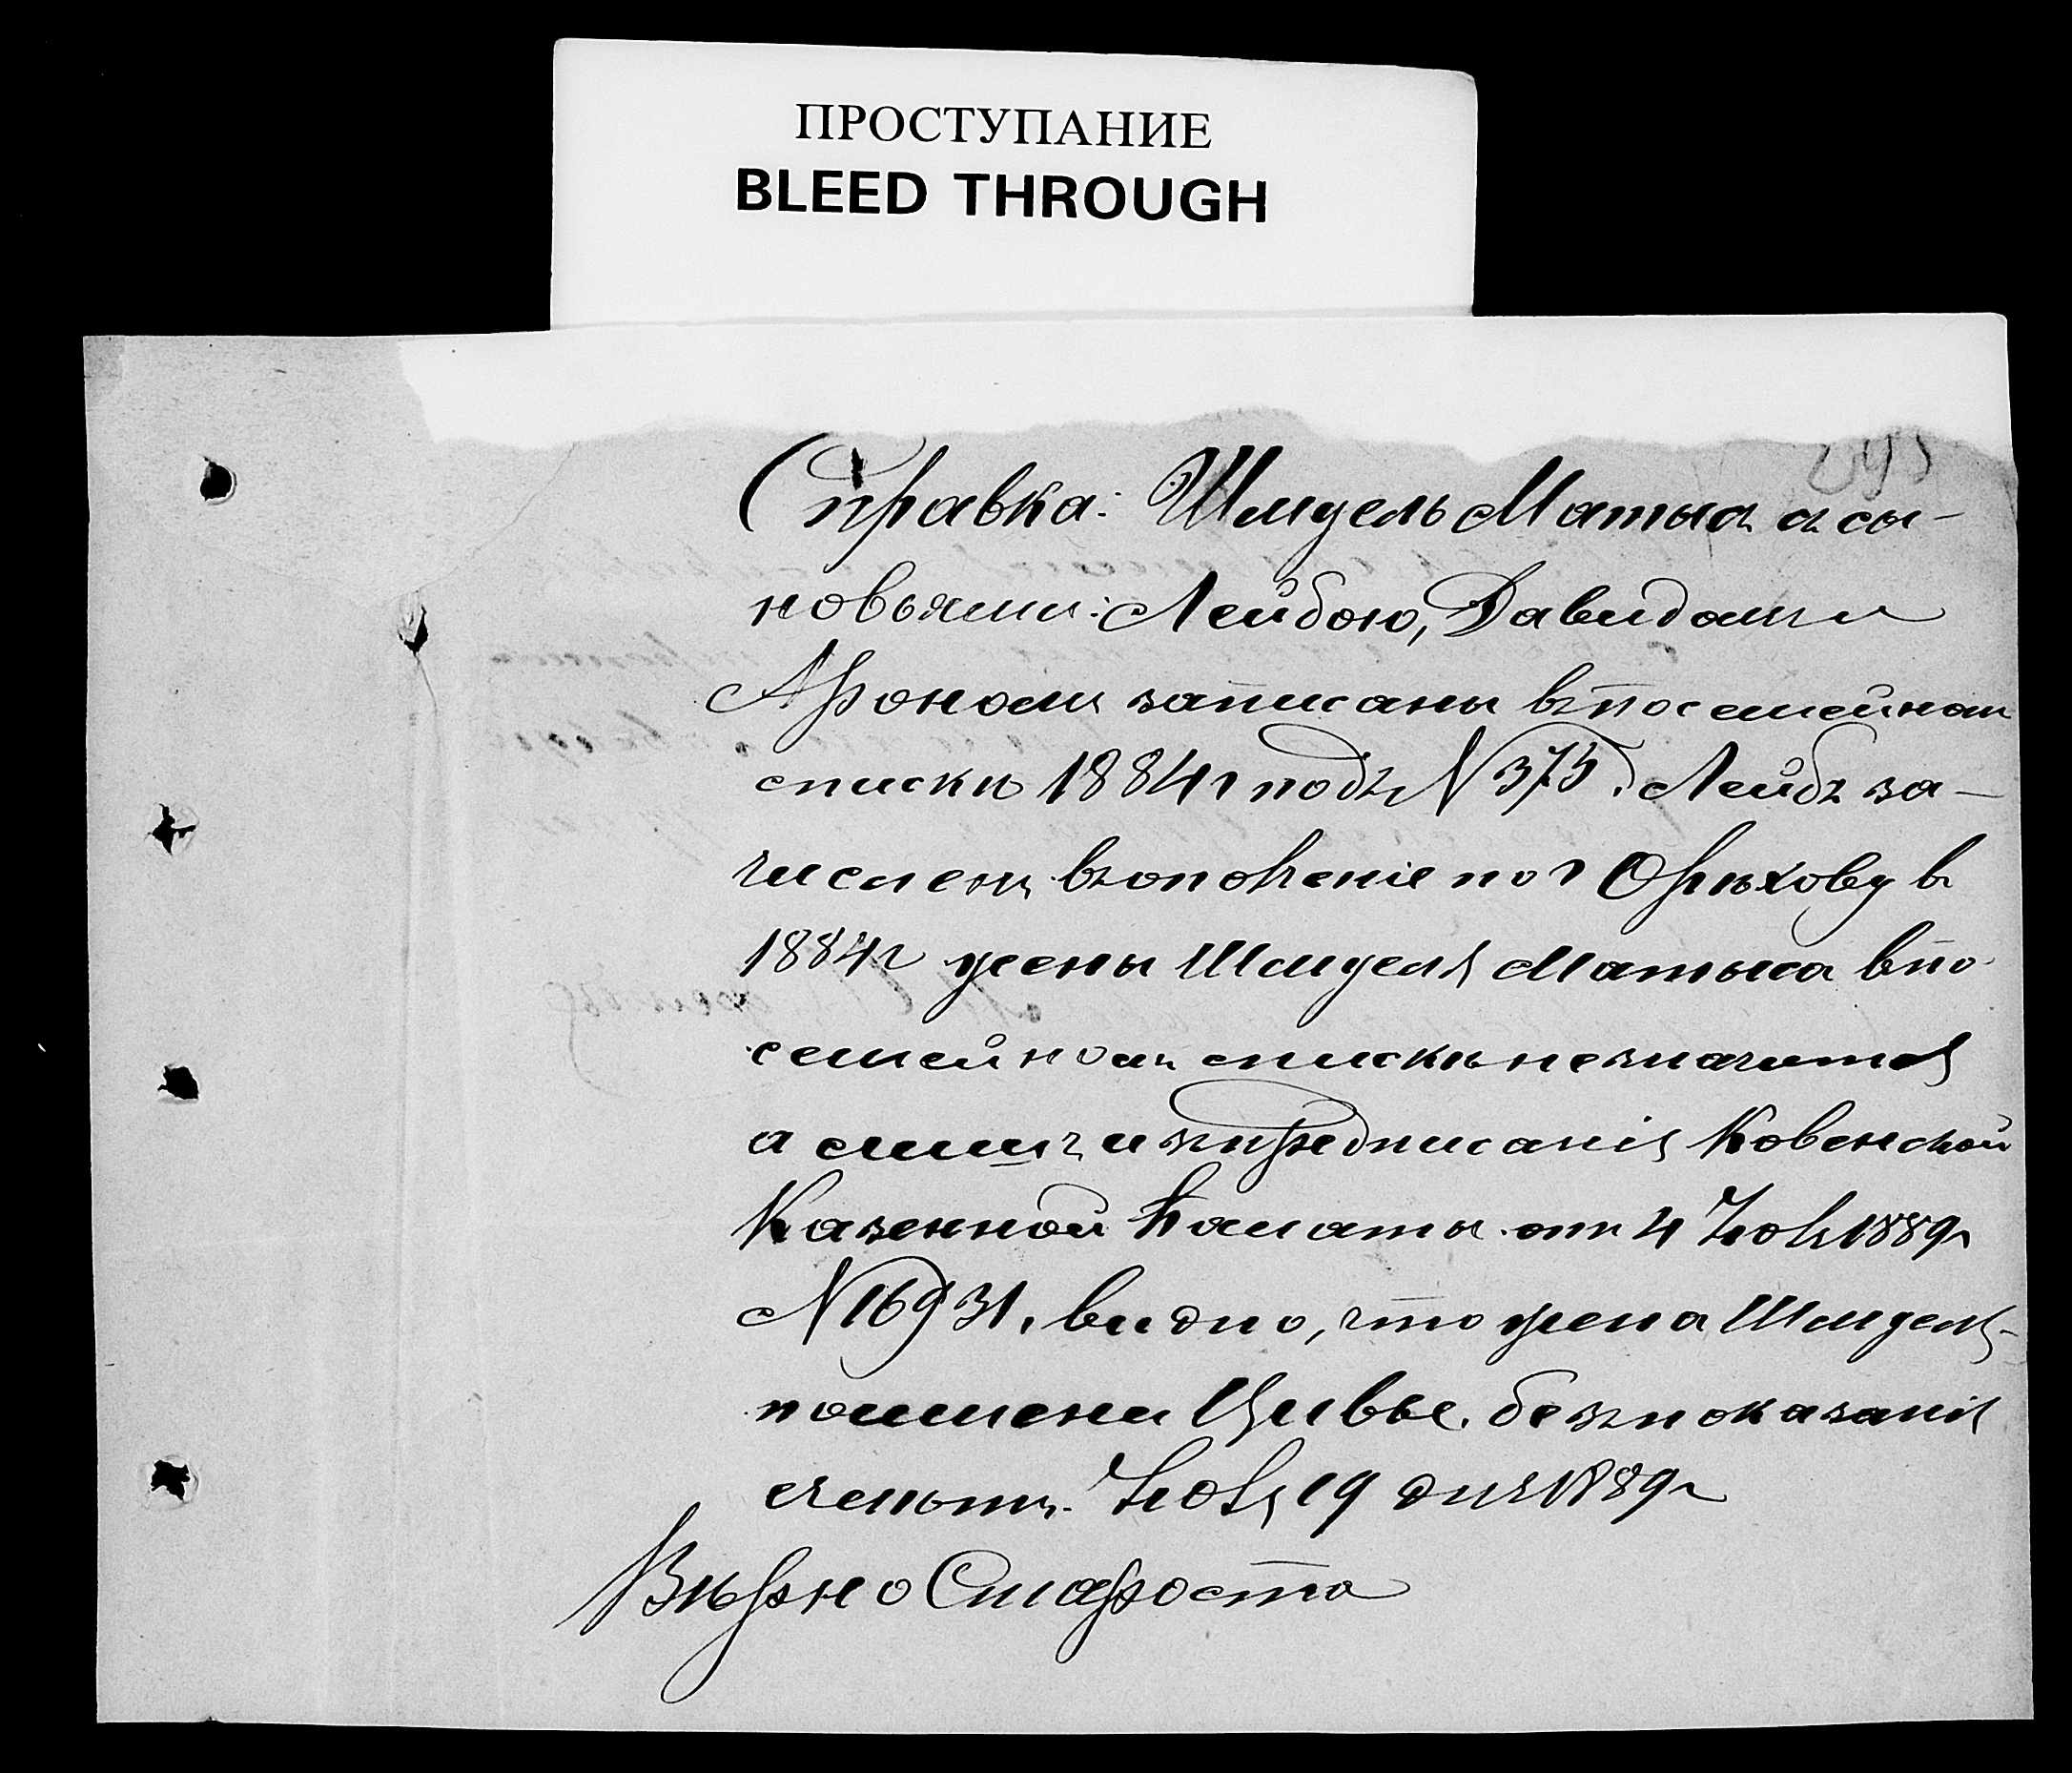 ПРОСТУПАНИЕ
BLEED THROUGH
Справка: Шмуель Матыс съ сы-
новьями: Лейбою, Давидомъ и
Арономъ записаны въ посемейном
спискѣ 1884 г подъ N 375. Лейбъ за-
численъ въ ополченіе по г Орѣхову въ
1884 г жены Шмуеля Матыса въ по
семейномъ спискѣ не значится
а изъ предписанія Ковенской
Казенной Палаты отъ 4 Іюля 1889 г
N 16931, видно, что жена Шмуеля
по имени Цивье, безъ показанія
лѣтъ. Іюля 19 дня 1889 г
Вѣрно Староста